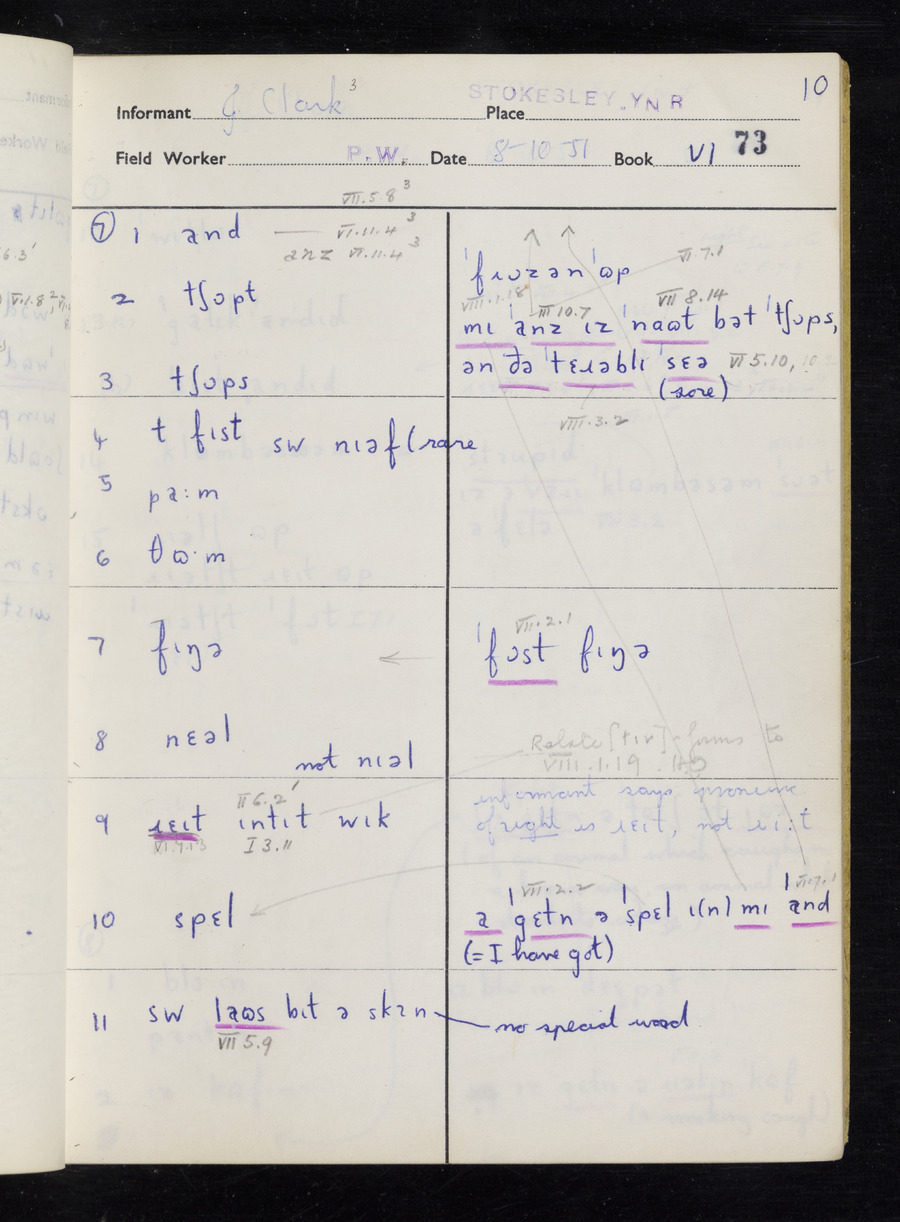 10
Informant J Clark 3 Place STOKESLEY, YNR
Field Worker P.W. Date 8-10 51 Book VI 73
VII.5.8 3
⑦ 1 and — VI.11.4 3
anz VI.11.4 3
ˈfɹɔzən ˈɒp VI.7.1
2 tʃɒpt
VIII.1.18 III 10.7 VII 8.14
mɪ ˈanz ɪz ˈnaɷt bət ˈtʃɒps,
ən ðə ˈtɛɹəblɪ ˈsɛə VI 5.10,
3 tʃɒps
(sore)
VIII.3.2
4 t fɪst sw nɪəf (rare
5 pa:m
6 θɷ·m
VII.2.1
7 fɪŋə ˈfɔst fɪŋə
8 nɛəl
not nɪəl
Relate [tɪv]-forms to
VIII.1.19
II 6.2
informant says pronunc
9 ɹɛɪt ɪntɪt wɪk
of right is ɹɛɪt, not ɹi:t
I 3.11
VII.2.2 VI.7.1
10 spɛl
a ˈgɛtn ə ˈspɛl ɪ(n) mɪ ˈand
(= I have got)
11 sw laɷs bɪt ə skɪn — no special word
VII 5.9